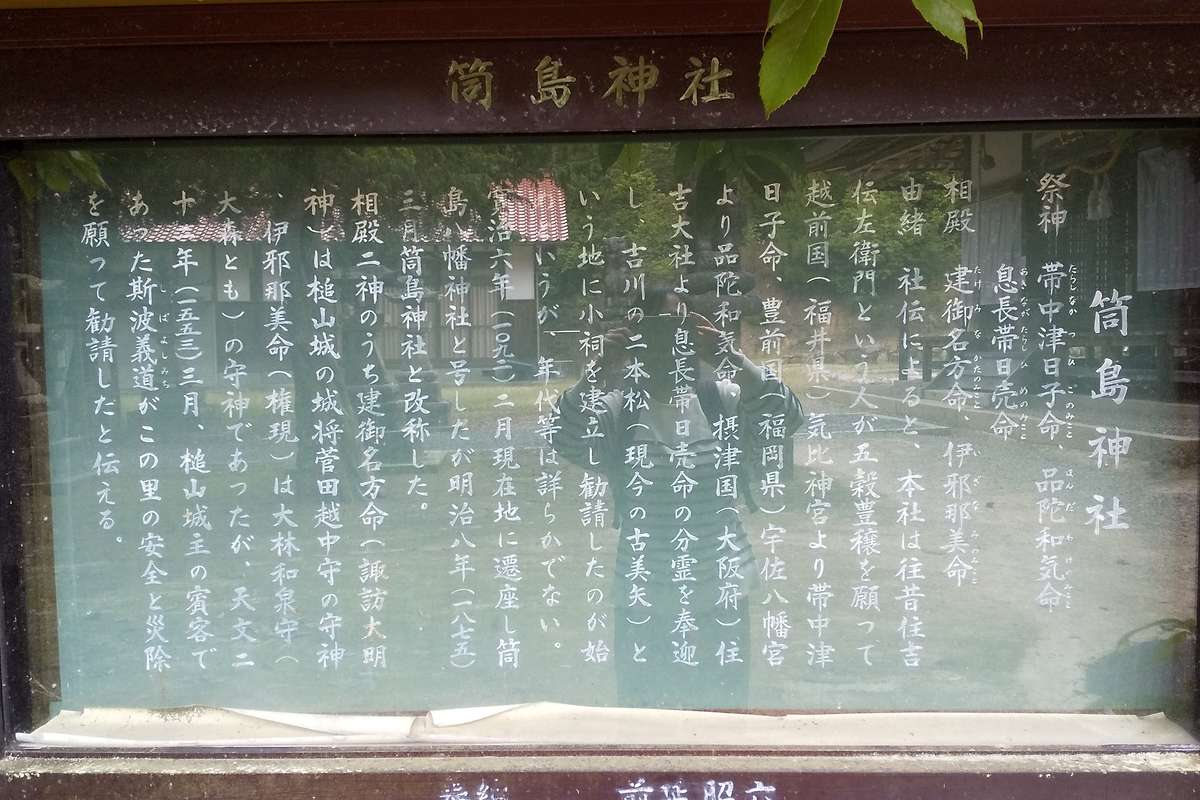 筒島神社
筒島神社
祭神 帯中津日子命、品陀和気命
たらしなか つひ このみこと ほんだ わ けのみこと
息長帯日売命
おきながたらしひ めのみこと
相殿 建御名方命 伊邪那美命
たけ み なかたのみこと い ざな みのみこと
由緒 社伝によると、本社は往昔住吉
伝左衛門という人が五穀豊穣を願って
越前国(福井県)気比神宮より帯中津
日子命、豊前国(福岡県)宇佐八幡宮
より品陀和気命、摂津国(大阪府)住
吉大社より息長帯日売命の分霊を奉迎
し、吉川の二本松(現今の古美矢)と
いう地に小祠を建立し勧請したのが始
というが、年代等は詳らかでない。
寛治六年(一〇九二)二月現在地に遷座し筒
島八幡神社と号したが明治八年(一八七五)
三月筒島神社と改称した。
相殿二神のうち建御名方命(諏訪大明
神)は槌山城の城将菅田越中守の守神
、伊邪那美命(権現)は大林和泉守(
大森とも)の守神であったが、天文二
十二年(一五五三)三月、槌山城主の賓客で
あった斯波義道がこの里の安全と災除
しばよしみち
を願って勧請したと伝える。